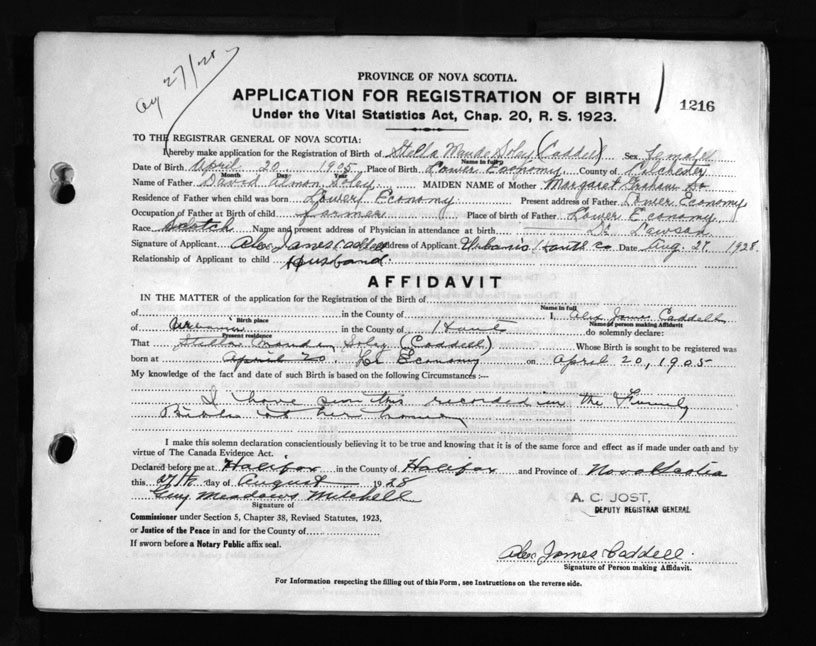 Aug 27/28
PROVINCE OF NOVA SCOTIA.
APPLICATION FOR REGISTRATION OF BIRTH
1216
Under the Vital Statistics Act, Chap. 20, R. S. 1923.
TO THE REGISTRAR GENERAL OF NOVA SCOTIA:
I hereby make application for the Registration of Birth of Stella Maude Soley (Caddell) Sex Female
Name in full
Date of Birth April 20 1905 Place of Birth Lower Economy County of Colchester
Month Day Year
Name of Father David Almon Soley MAIDEN NAME of Mother Margaret Graham
Residence of Father when child was born Lower Economy Present address of Father Lower Economy
Occupation of Father at Birth of child farmer Place of birth of Father Lower Economy
Race Scotch Name and present address of Physician in attendance at birth Dr Lawson
Signature of Applicant Alex James Caddell Address of Applicant Urbania Hants Co Date Aug. 27 1928.
Relationship of Applicant to child Husband.
AFFIDAVIT
IN THE MATTER of the application for the Registration of the Birth of
Name in full
of in the County of I, Alex James Caddell
Birth place Name of person making Affidavit
of Urbania in the County of Hants do solemnly declare:
Present residence
That Stella Maude Soley (Caddell) Whose Birth is sought to be registered was
born at April 20. Lr Economy on April 20, 1905
My knowledge of the fact and date of such Birth is based on the following Circumstances:—
I have seen this recorded in the Family
Bible at her home
I make this solemn declaration conscientiously believing it to be true and knowing that it is of the same force and effect as if made under oath and by
virtue of The Canada Evidence Act.
Declared before me at Halifax in the County of Halifax and Province of Nova Scotia
this 27th day of August 1928
Guy Meadows Mitchell
Signature of
A. C. JOST,
DEPUTY REGISTRAR GENERAL
Commissioner under Section 5, Chapter 38, Revised Statutes, 1923,
or Justice of the Peace in and for the County of
If sworn before a Notary Public affix seal.
Alex James Caddell.
Signature of Person making Affidavit.
For Information respecting the filling out of this Form, see Instructions on the reverse side.